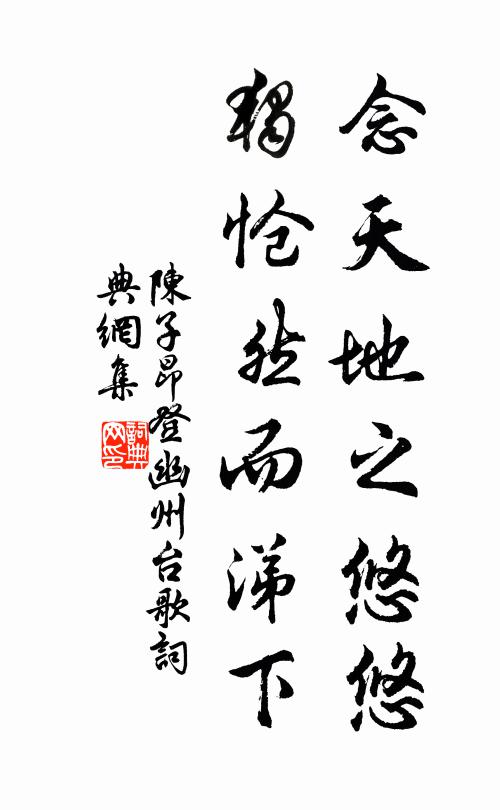 念天地之悠悠
獨怆然而涕下
陳子昂登幽州台歌詞
典網集
詞典
网印